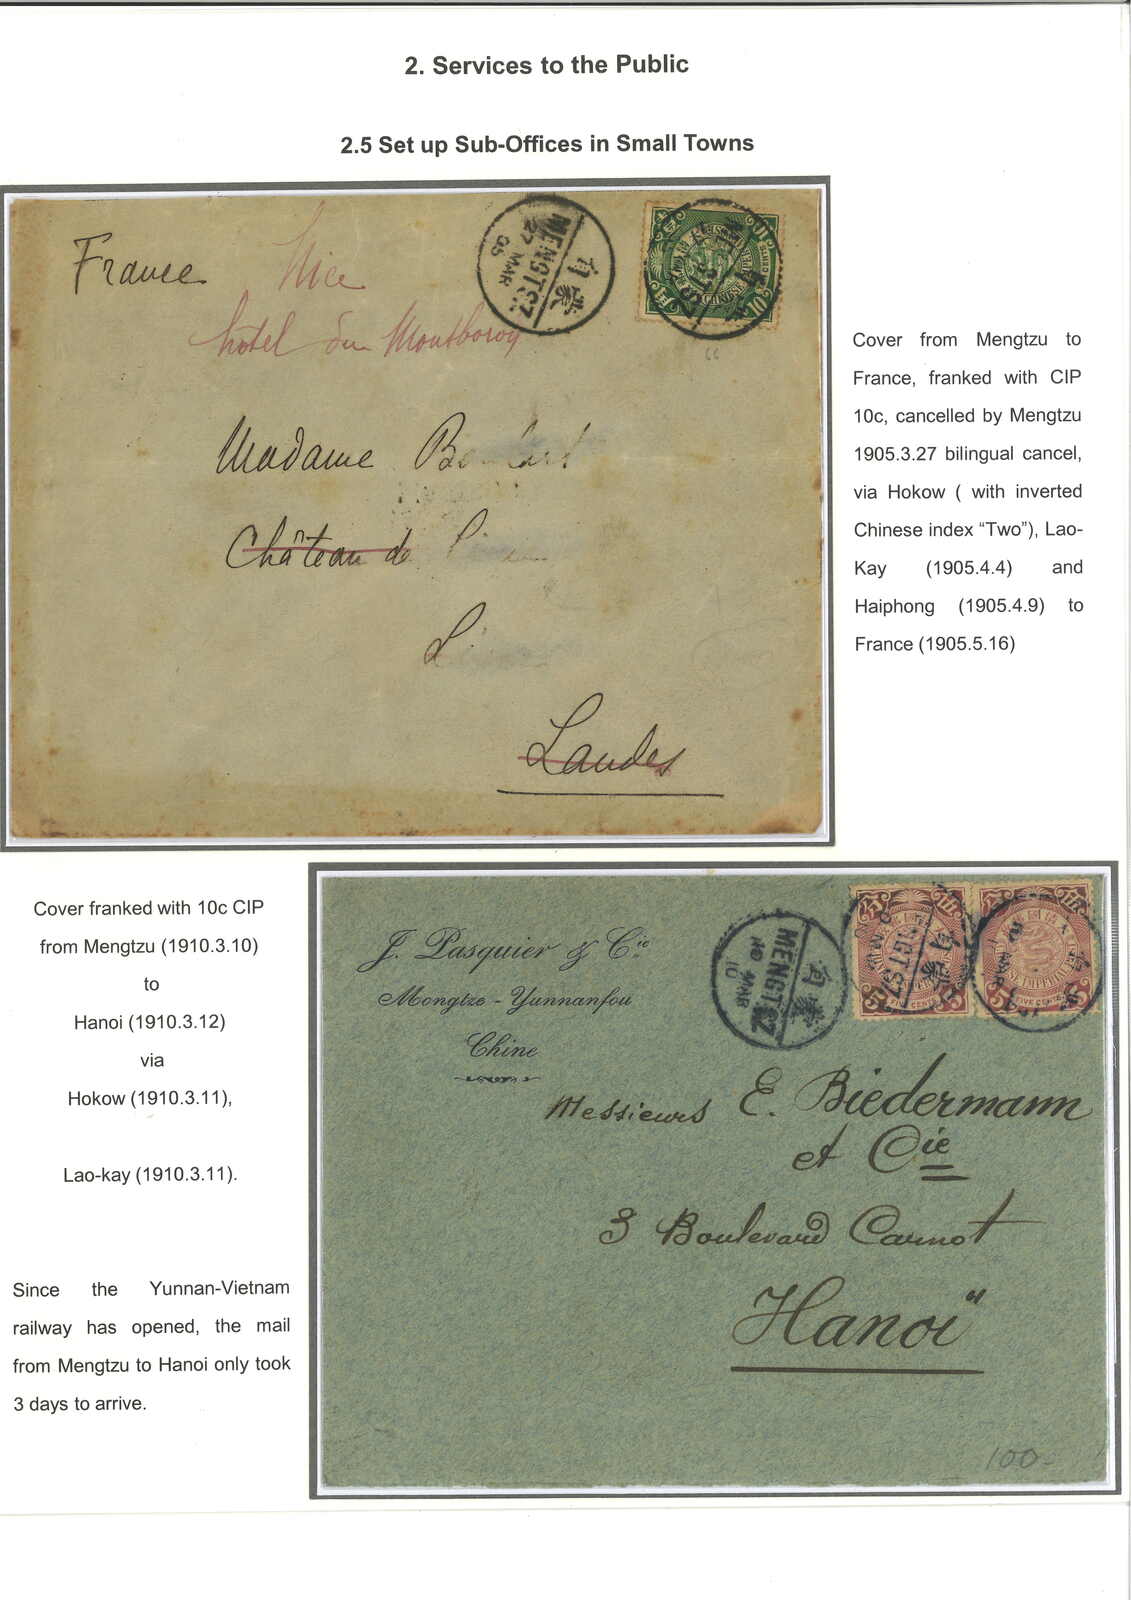 2. Services to the Public
2.5 Set up Sub-Offices in Small Towns
France
Nice
hôtel du
MENGTSZ
27 MAR
05
蒙自
Madame
Château de
L
Landes
Cover from Mengtzu to
France, franked with CIP
10c, cancelled by Mengtzu
1905.3.27 bilingual cancel,
via Hokow ( with inverted
Chinese index “Two”), Lao-
Kay (1905.4.4) and
Haiphong (1905.4.9) to
France (1905.5.16)
Cover franked with 10c CIP
from Mengtzu (1910.3.10)
to
Hanoi (1910.3.12)
via
Hokow (1910.3.11),
Lao-kay (1910.3.11).
Since the Yunnan-Vietnam
railway has opened, the mail
from Mengtzu to Hanoi only took
3 days to arrive.
J. Pasquier & Cie
Mongtze - Yunnanfou
Chine
MENGTSZ
10 MAR
10
蒙自
FIVE CENTS
5
FIVE CENTS
5
Messieurs E. Biedermann
et Cie
3 Boulevard Carnot
Hanoï
100-